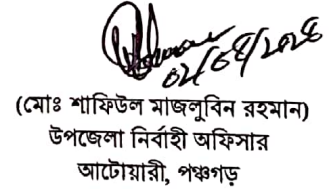 ০২/০৪/২০২৪
(মোঃ শাফিউল মাজলুবিন রহমান)
উপজেলা নির্বাহী অফিসার
আটোয়ারী, পঞ্চগড়